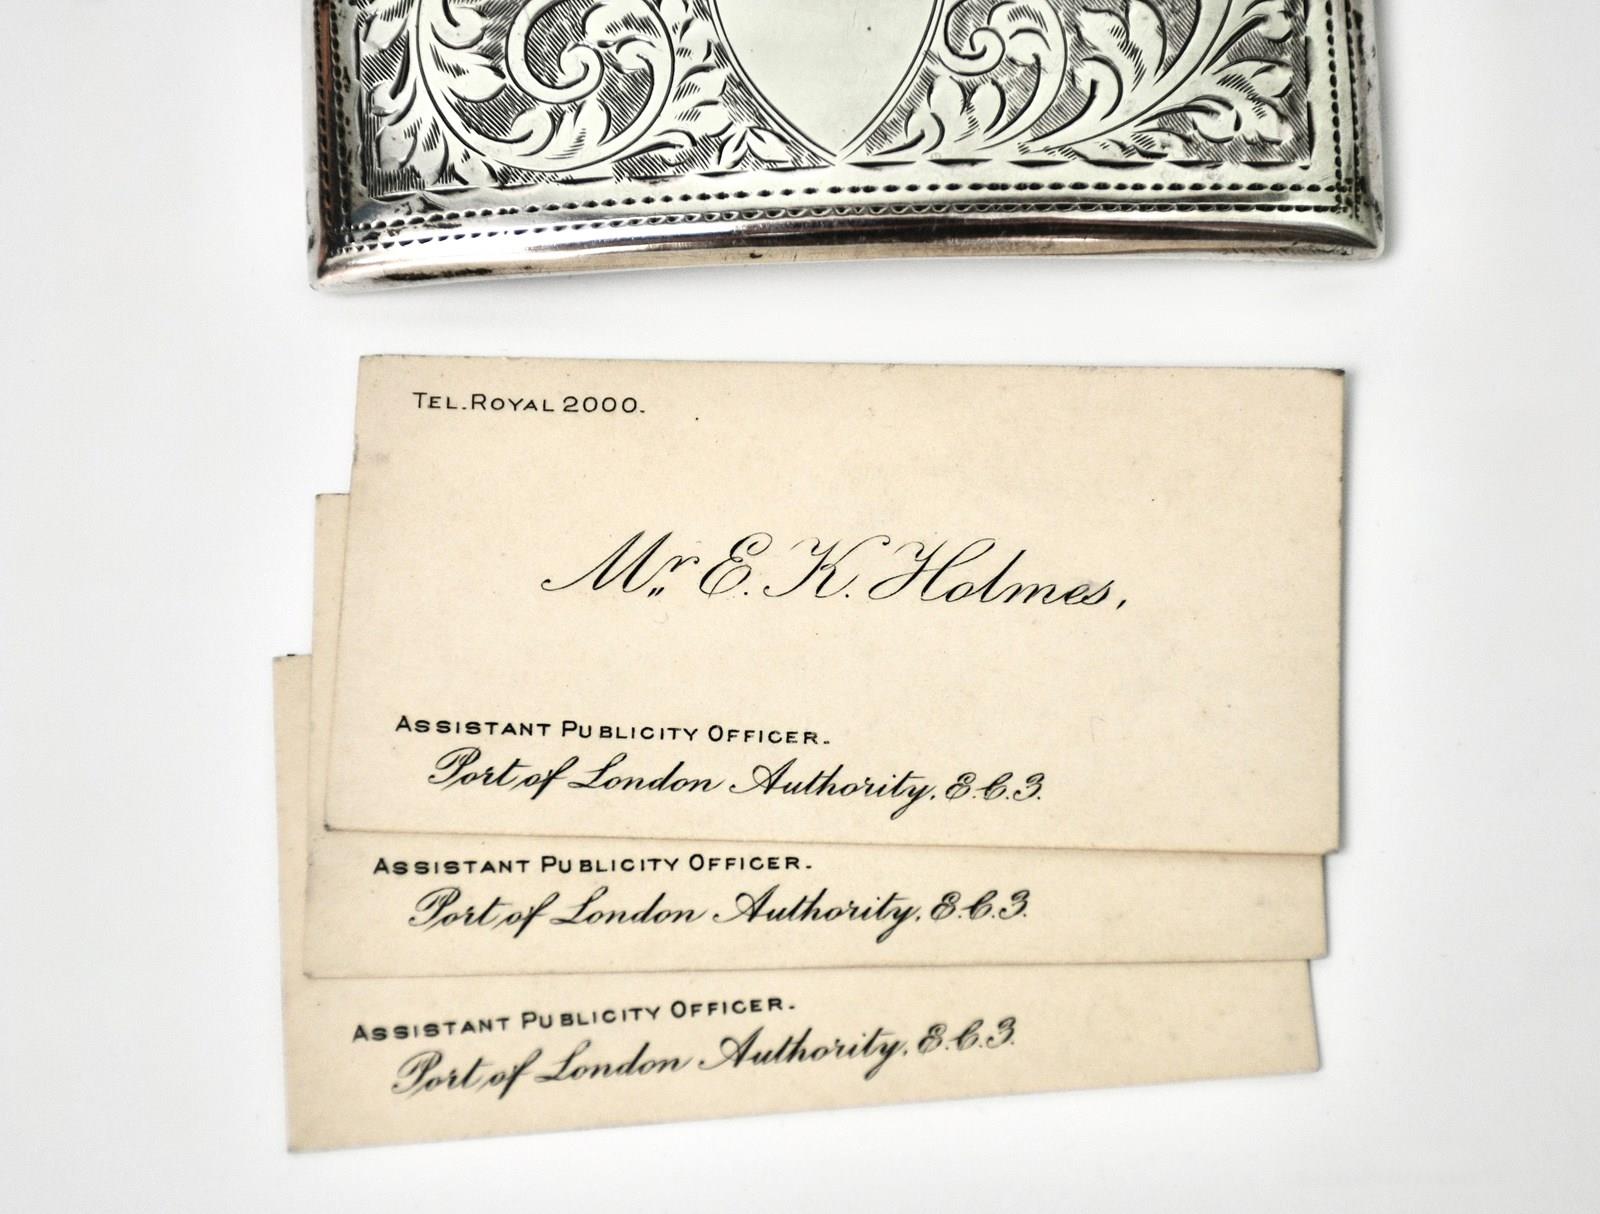 TEL. ROYAL 2000.
Mr. E. K. Holmes,
ASSISTANT PUBLICITY OFFICER.
Port of London Authority, E.C.3.
ASSISTANT PUBLICITY OFFICER.
Port of London Authority, E.C.3.
ASSISTANT PUBLICITY OFFICER.
Port of London Authority, E.C.3.